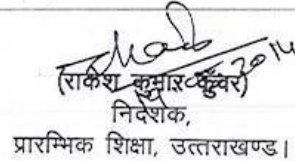 (राकेश कुमार कुँवर)
निदेशक,
प्रारम्भिक शिक्षा, उत्तराखण्ड।